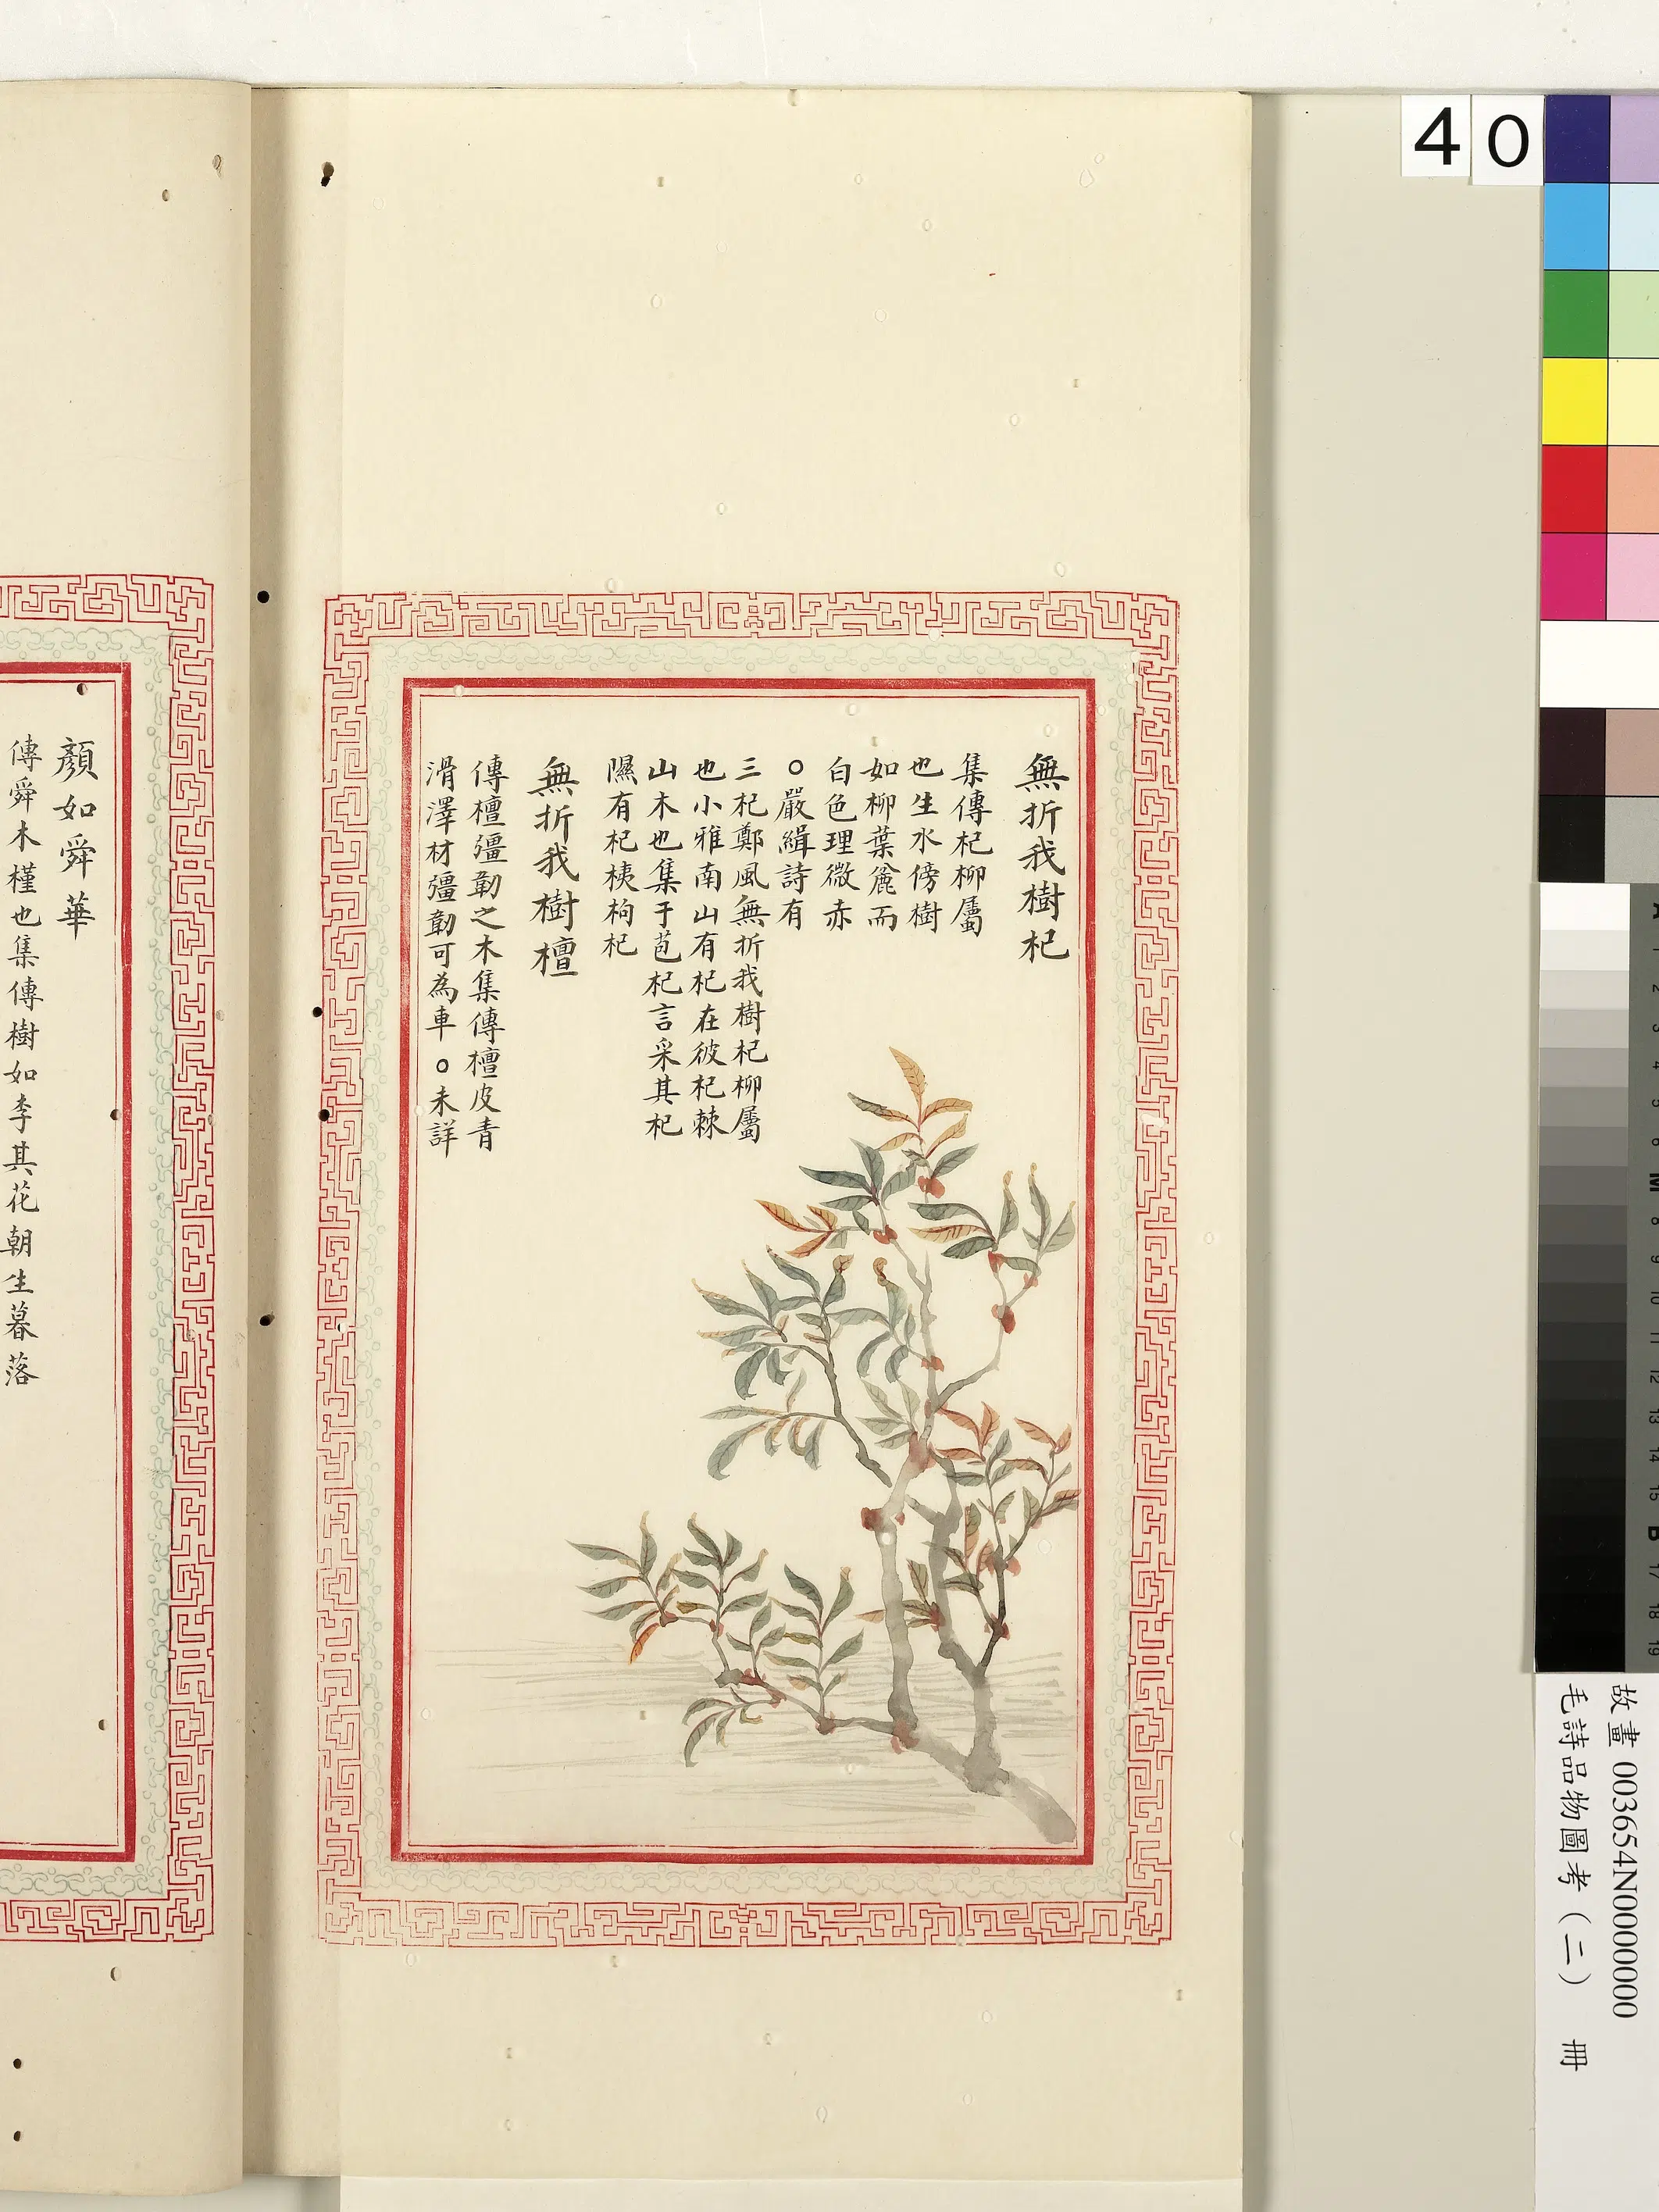 40
無折我樹杞
集傳杞柳屬
也生水傍樹
如柳葉麄而
白色理微赤
○嚴緝詩有
三杞鄭風無折我樹杞柳屬
也小雅南山有杞在彼杞棘
山木也集于苞杞言采其杞
隰有杞桋枸杞
無折我樹檀
傳檀彊韌之木集傳檀皮青
滑澤材彊韌可為車○未詳
顏如舜華
傳舜木槿也集傳樹如李其花朝生暮落
故畫 003654N000000000
毛詩品物圖考（二） 冊
A 1 2 3 4 5 6 M 8 9 10 11 12 13 14 15 B 17 18 19